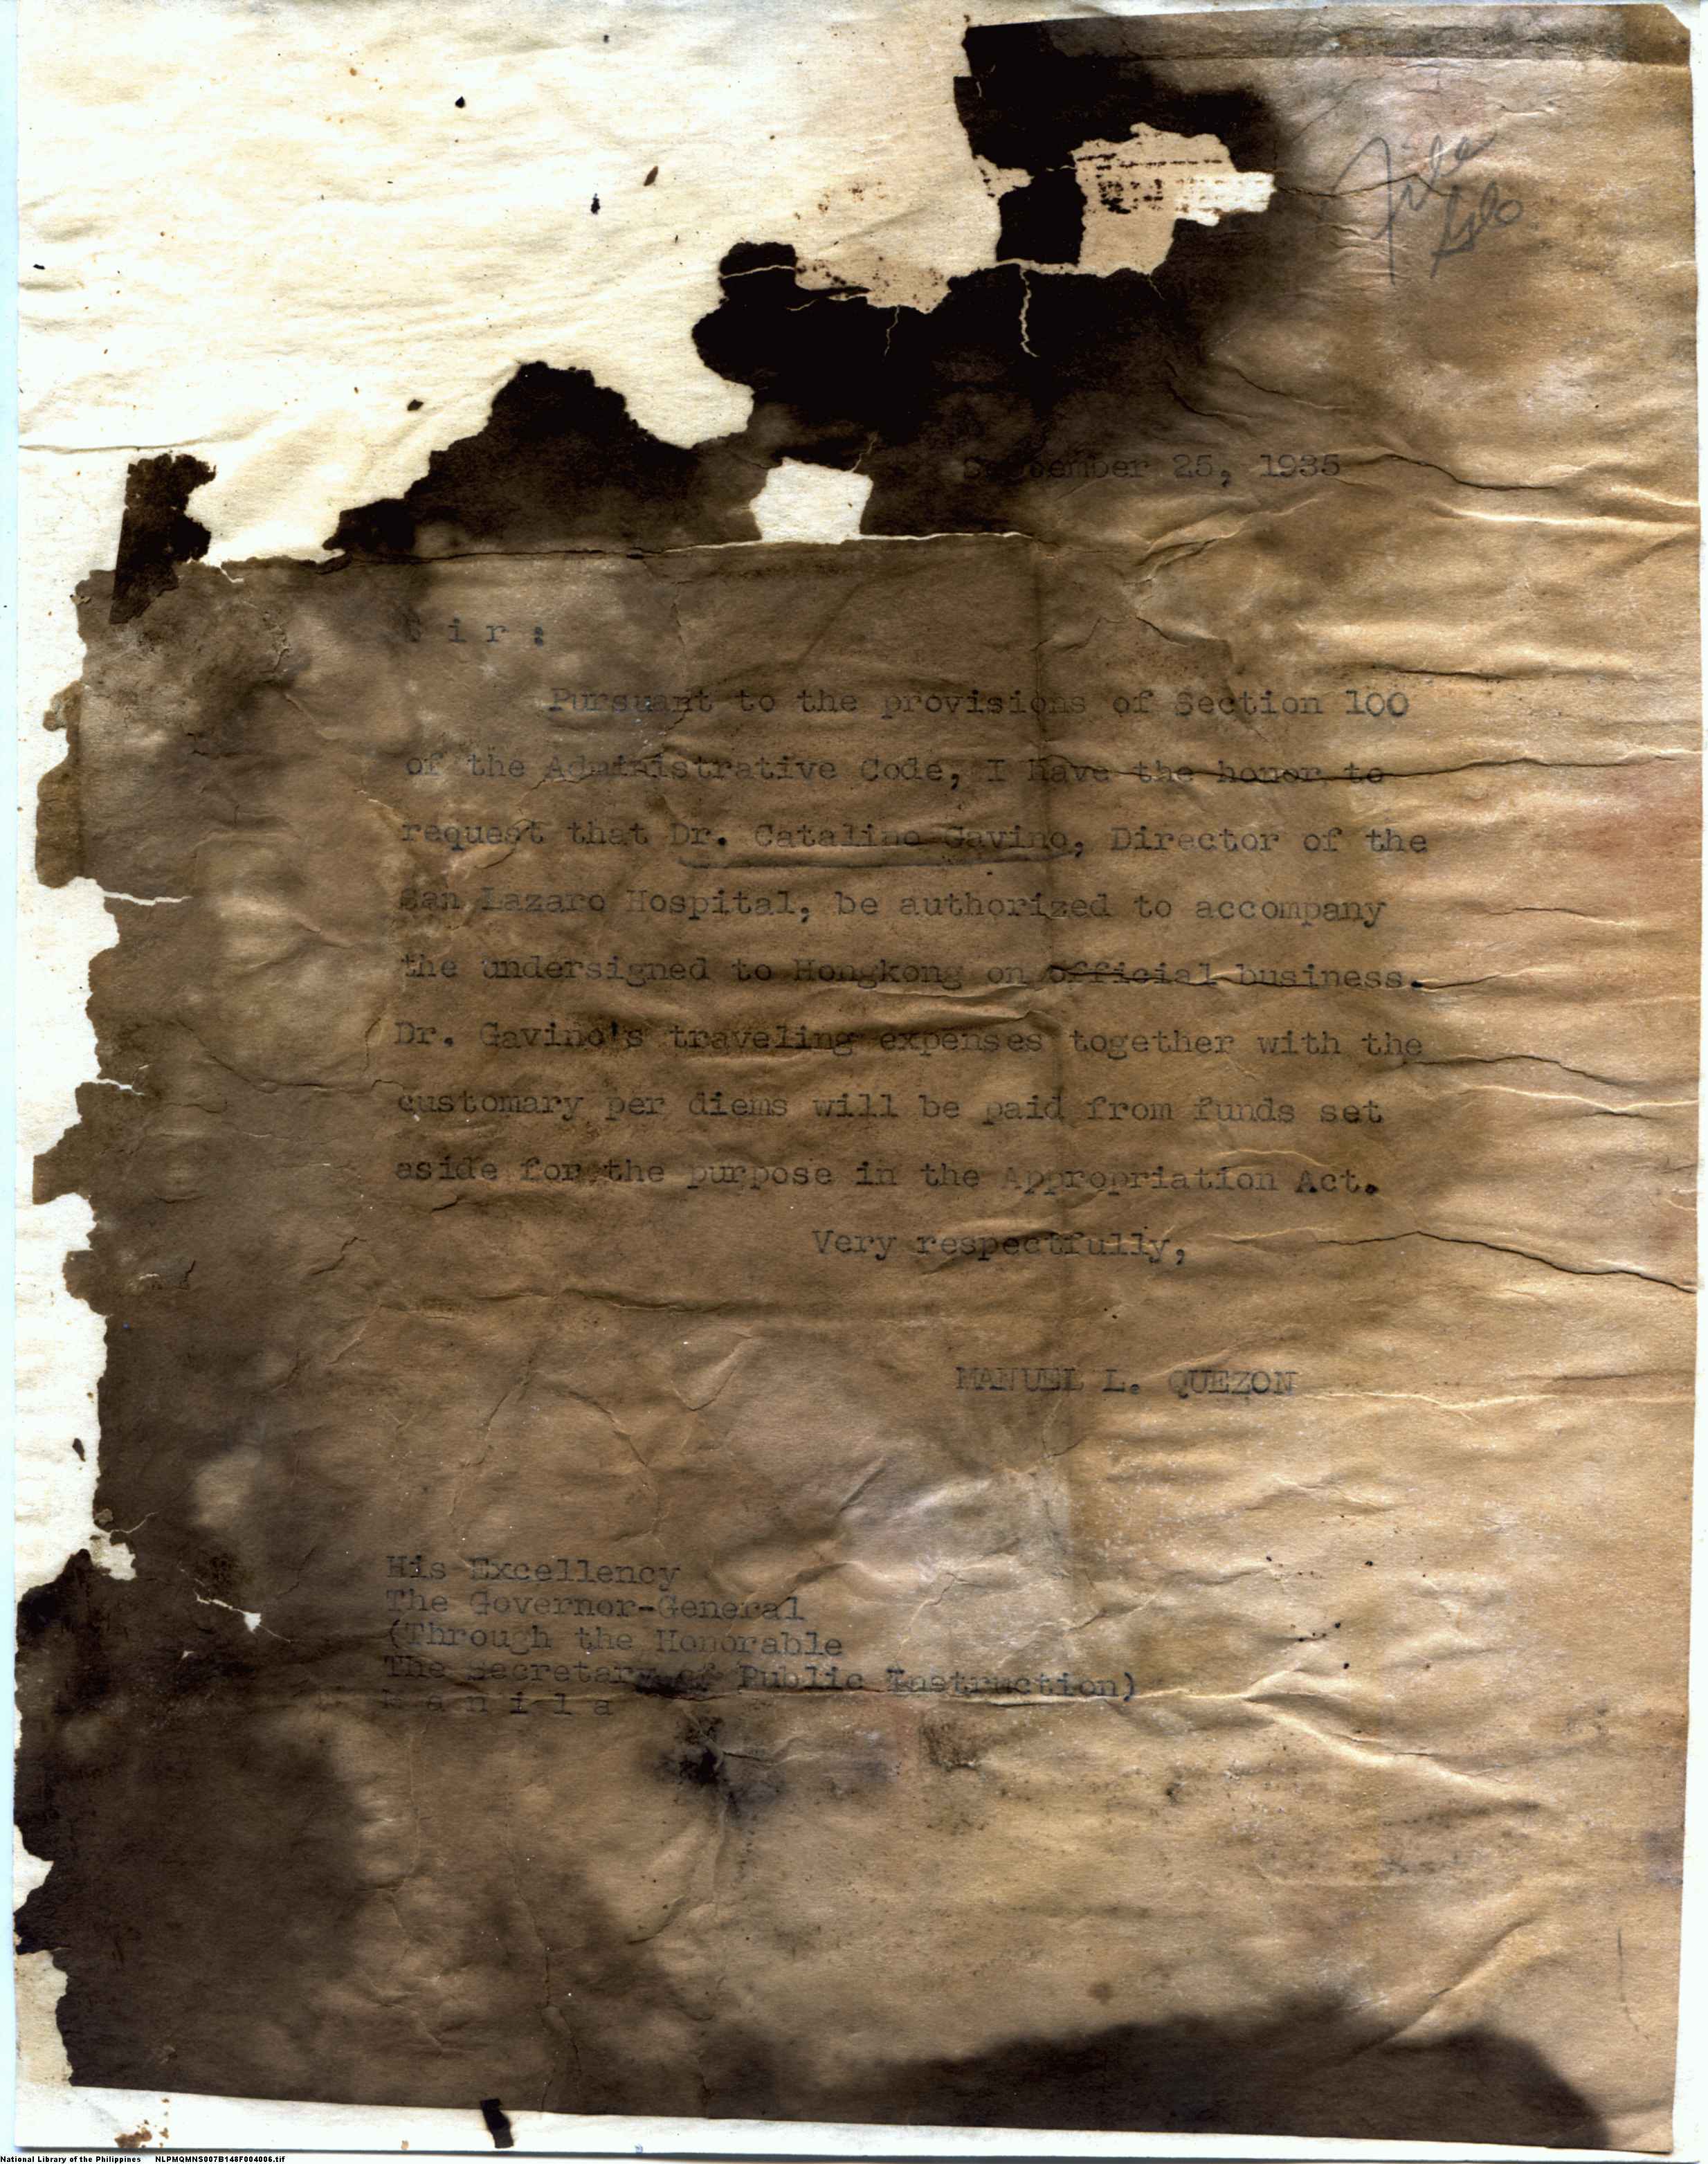 File
September 25, 1935
S i r :
Pursuant to the provisions of Section 100
of the Administrative Code, I have the honor to
request that Dr. Catalino Gavino, Director of the
San Lazaro Hospital, be authorized to accompany
the undersigned to Hongkong on official business.
Dr. Gavino's traveling expenses together with the
customary per diems will be paid from funds set
aside for the purpose in the Appropriation Act.
Very respectfully,
MANUEL L. QUEZON
His Excellency
The Governor-General
(Through the Honorable
The Secretary of Public Instruction)
M a n i l a
National Library of the Philippines NLPMQMNS007B148F004006.tif